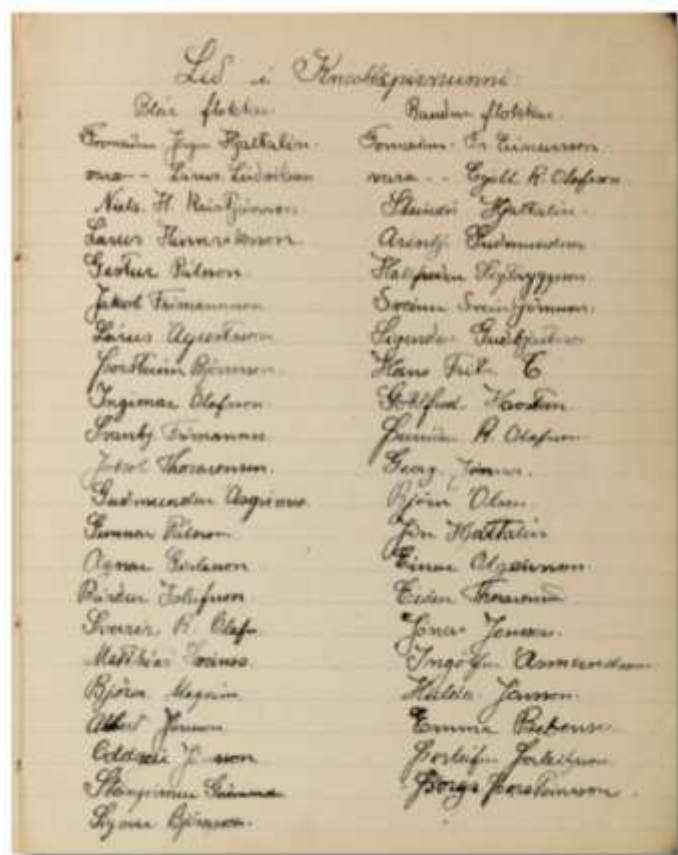 Lið i Knattspirnunni
Bláir flokkur
Formaður Jörgen Hjaltalin.
vara - - Lárus Ludviksson
Niels. H. Kristjánsson
Lárus Hinriksson
Gestur Pálsson
Jakob Frimannsson
Lárus Agustsson
Þorsteinn Björnsson
Ingimar Olafsson
Svanbj. Frimanns
Jakob Thorarensen
Guðmundur Asgrims
Gunnar Pálsson
Agnar
Bárður Isleifsson
Sverrir R. Olafs
Matthias
Björn Magnús
Albert Jónsson
Oddgeir Jónsson
Steingrimur
Björnsson.
Rauður flokkur
Formaður. Fr Einarsson
vara - - Egill R. Olafsson
Steindór Hjaltalin.
Arinbj. Guðmundsson
Hallfreður Sigtryggsson
Sveinn Sveinbjörnsson.
Sigurður Guðbjartsson
Hans Frit. C
Gottfred
R. Olafsson
Georg. Jónsson.
Björn Olsen
Jón Hjaltalin
Einar Olgeirsson.
Thorarensen
Jónas Jónsson.
Ingólfur Asmundsson
Halldór Jónsson.
Emma
Þorleifur Þorleifsson
Þorgr Þorsteinsson.